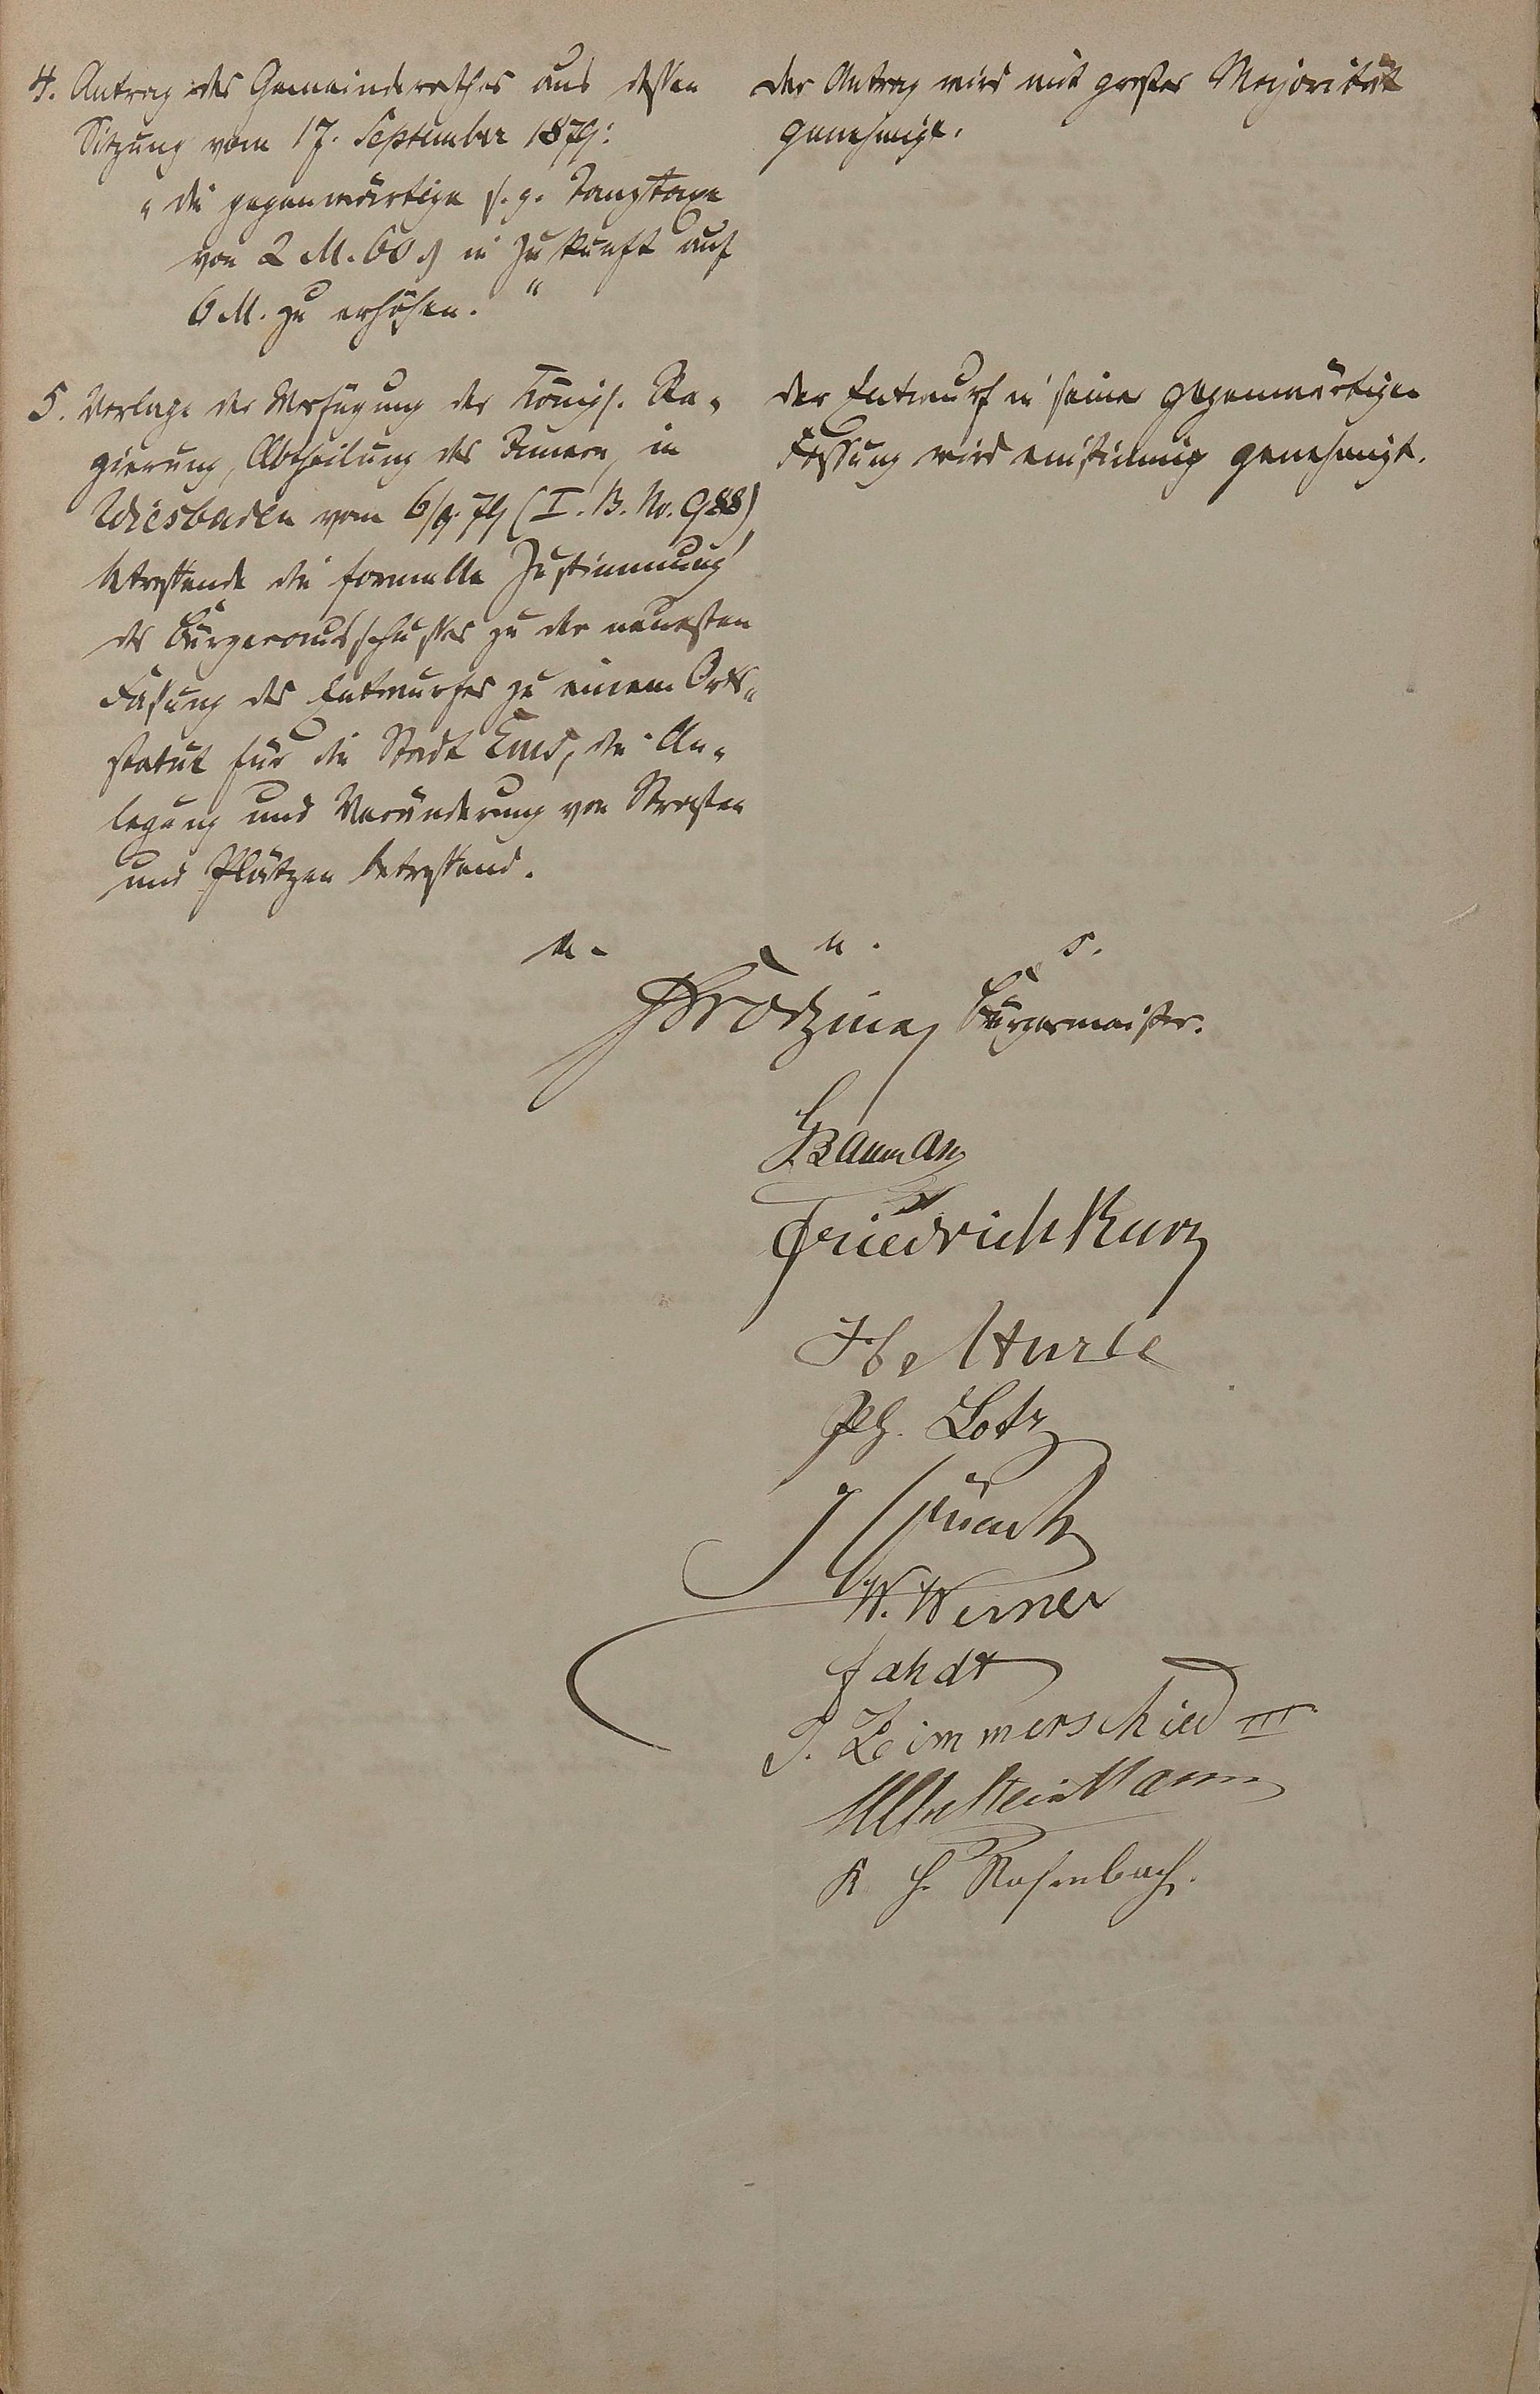 4. Antrag des Gemeinderathes aus dessen
Sitzung vom 17. September 1879:
"die gegenwärtige s. g. Tanztaxe
von 2 M. 60 ₰ in Zukunft auf
6 M. zu erhöhen."
der Antrag wird mit großer Majorität
genehmigt.
5. Vorlage der Verfügung der Königl. Re-
gierung, Abtheilung des Innern, in
Wiesbaden vom 6/9. 79 (I. B. No. 988),
betreffende die formelle Zustimmung
des Bürgerausschusses zu der neuesten
Fassung des Entwurfes zu einem Orts-
statut für die Stadt Ems, die An-
legung und Veränderung von Straßen
und Plätzen betreffend.
der Entwurf in seiner gegenwärtigen
Fassung wird einstimmig genehmigt.
u. s.
Bürgermeister.
Friedrich Kurz
Ph. Lotz
W. Werner
fahdt
P. Zimmerschied III
K H. Rosenbach.